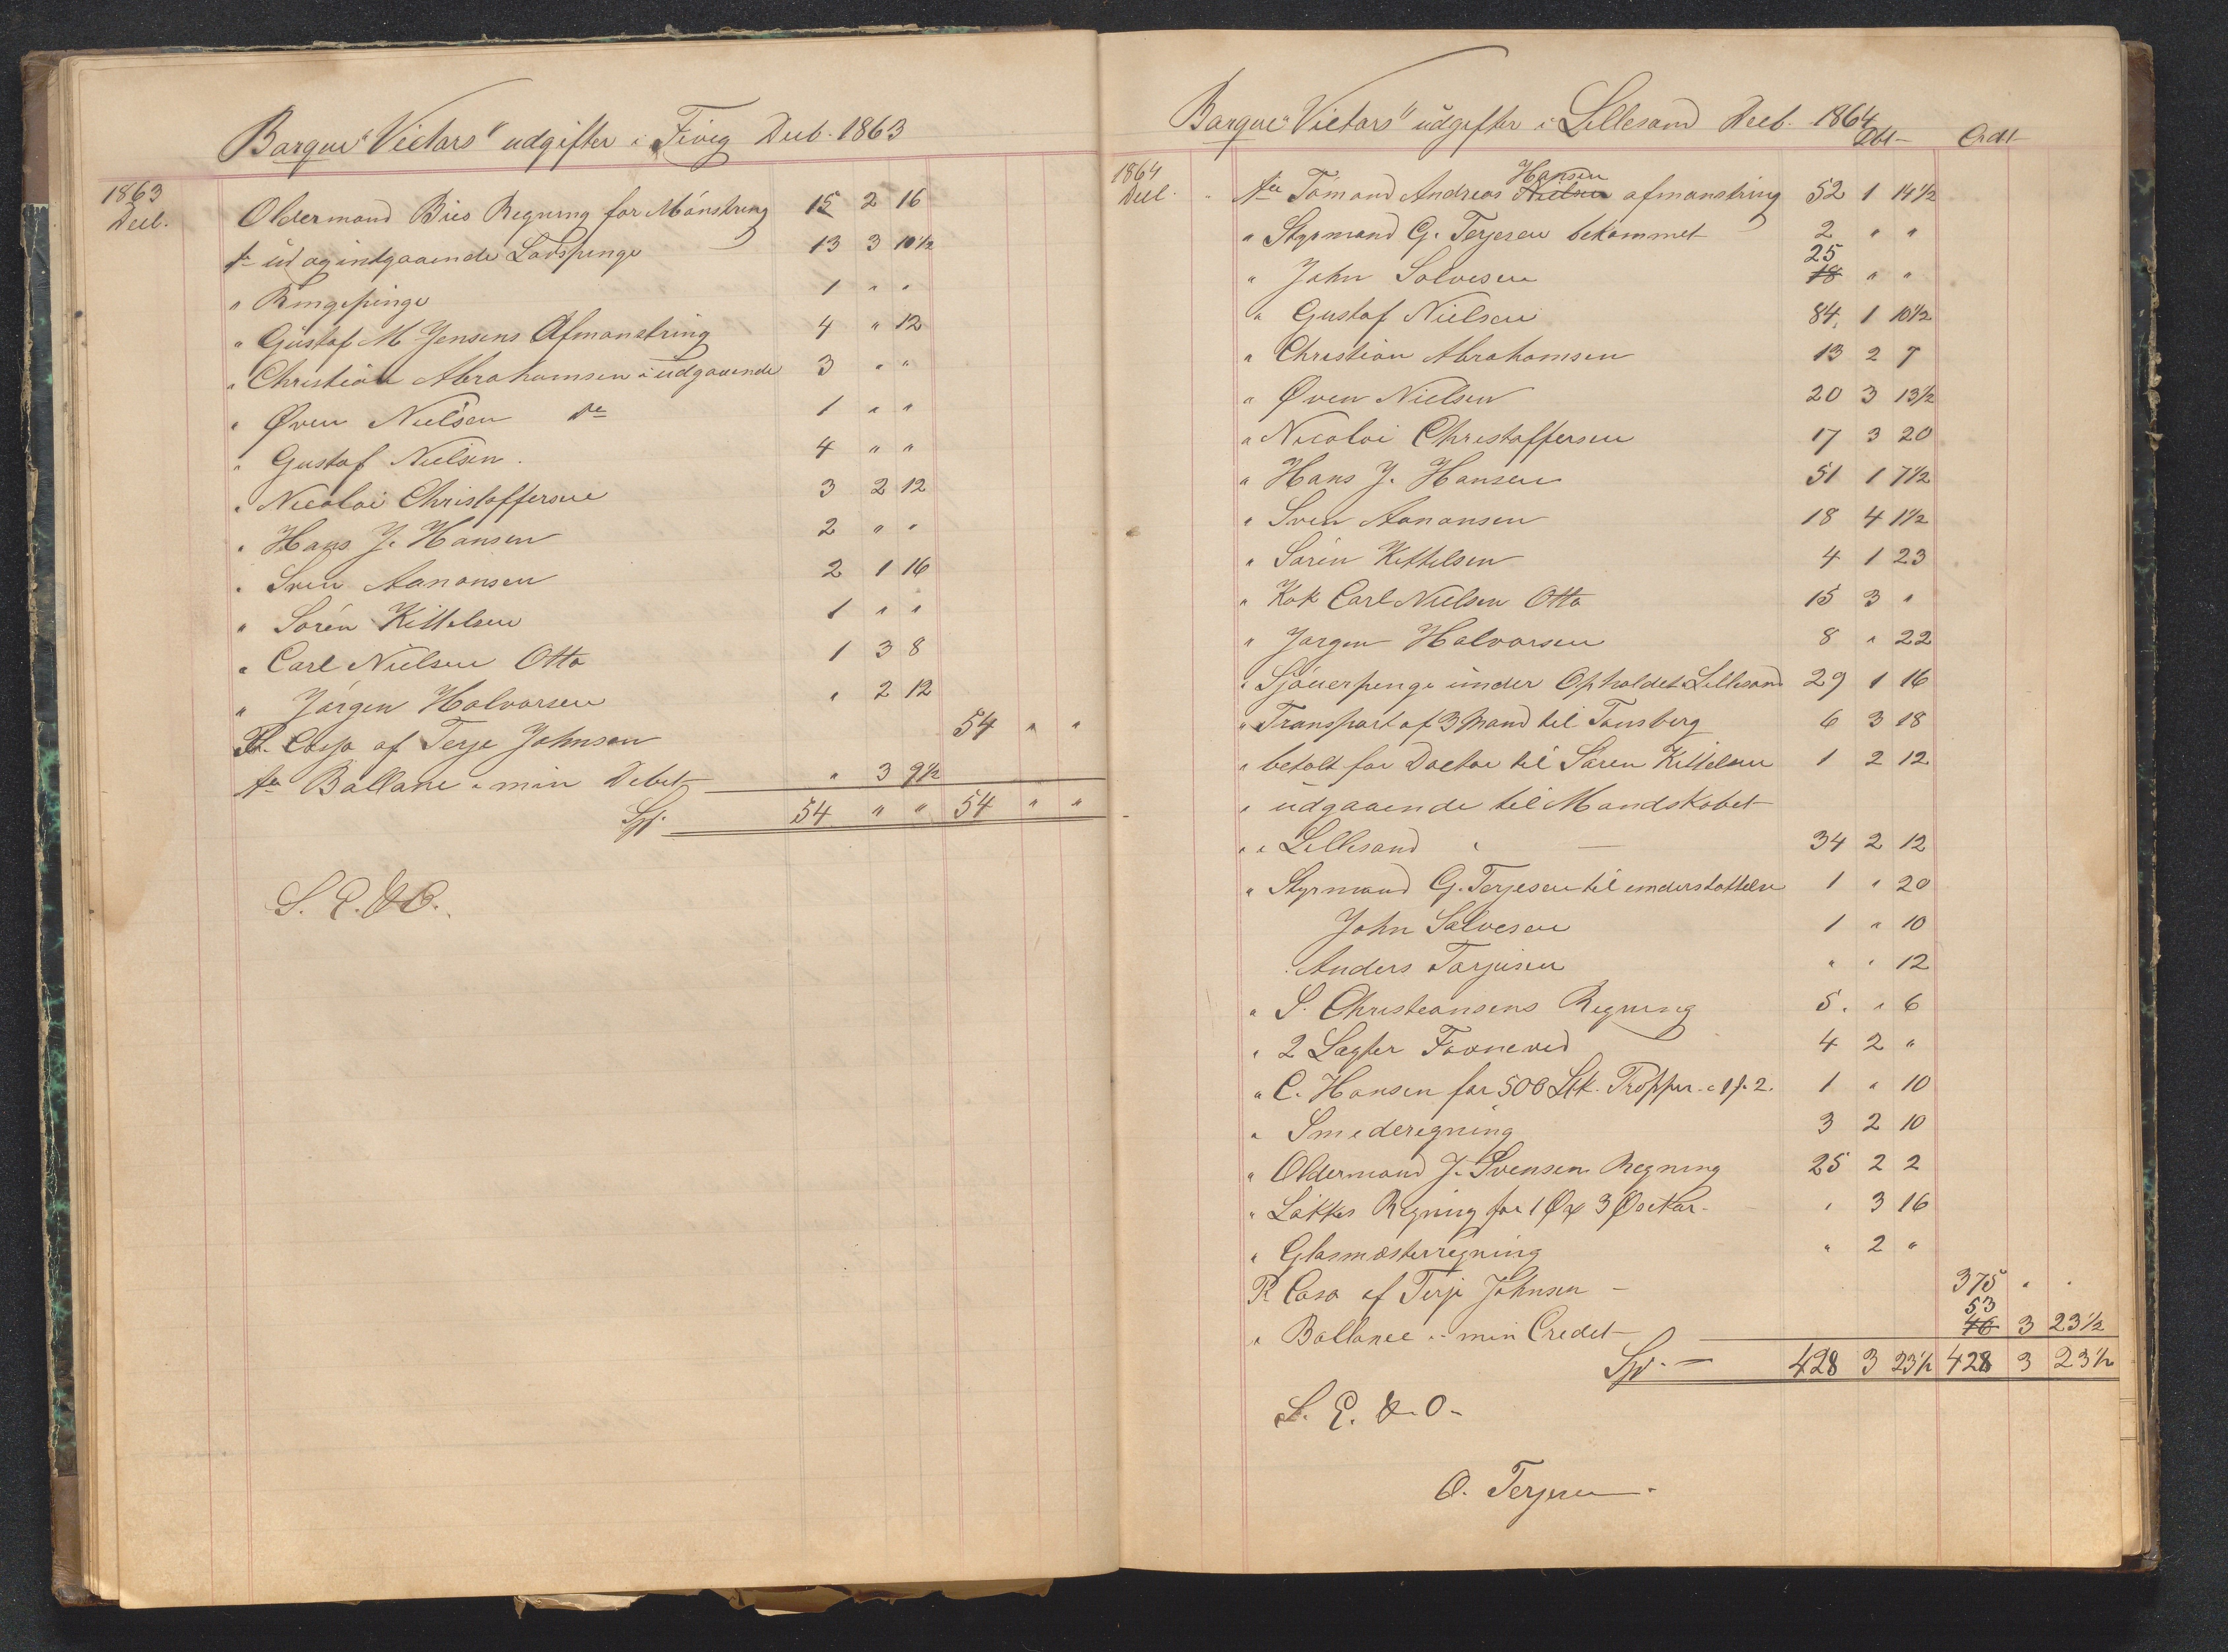 Barque "Victors" udgifter i Fivig Decb. 1863
1863
Decb.
Oldermand Bies Regning for Mönstring 15 2 16
to ud og indgaaende Lodspenge 13 3 10½
" Ringepenge 1 " "
" Gustaf M Jensens Afmönstring 4 " 12
" Christian Abrahamsen i udgaaende 3 " "
" Øven Nielsen do 1 " "
" Gustaf Nielsen. 4 " "
" Nicolai Christoffersen 3 2 12
" Hans J. Hansen 2 " "
" Sven Aanonsen 2 1 16
" Sören Kittelsen 1 " "
" Carl Nielsen Otto 1 3 8
" Jörgen Halvorsen " 2 12
Pr. Casso af Terje Johnsen 54 " "
to Ballane i min Debet " 3 9½
Spf. 54 " " 54 " "
S. E. & O.
Barque "Victors" udgifter i Lillesand Decb. 1864
Dbt Credt
1864
Decb. " to Tömand Andreas Nielsen Hansen afmønstring 52 1 14½
" Styrmand G. Terjesen bekommet 2 " "
" John Solvesen 18 25 " "
" Gustaf Nielsen 84. 1 10½
" Christian Abrahamsen 13 2 7
" Øven Nielsen 20 3 13½
" Nicolai Christoffersen 17 3 20
" Hans J. Hansen 51 1 7½
" Sven Aanonsen 18 4 1½
" Sören Kittelsen 4 1 23
" Kok Carl Nielsen Otto 15 3 "
" Jorgen Halvorsen 8 " 22
" Sjöuerpenge under Opholdet i Lillesand 29 1 16
" Transport af 3 Mand til Tonsberg 6 3 18
" betalt for Doctor til Soren Kittelsen 1 2 12
" udgaaende til Mandskabet
" i Lillesand " 34 2 12
" Styrmand G. Terjesen til understottelse 1 " 20
John Salvesen 1 " 10
" Anders Torjusen " " 12
" S. Christiansens Regning 5. " 6
" 2 Lagter Favneved 4 2 "
" C. Hansen for 500 Stk. Propper a 1/.2. 1 " 10
" Smederegning 3 2 10
" Oldermand J. Svensen Regning 25 2 2
" Låkkes Regning for 1 Øx 3 Øsekar " 3 16
" Glasmesterregning " 2 "
Pr Casa af Terje Johnsen 375 " "
" Ballance i min Credet 46 53 3 23½
Spf. 428 3 23½ 428 3 23½
S. E. & O.
O. Terjesen.